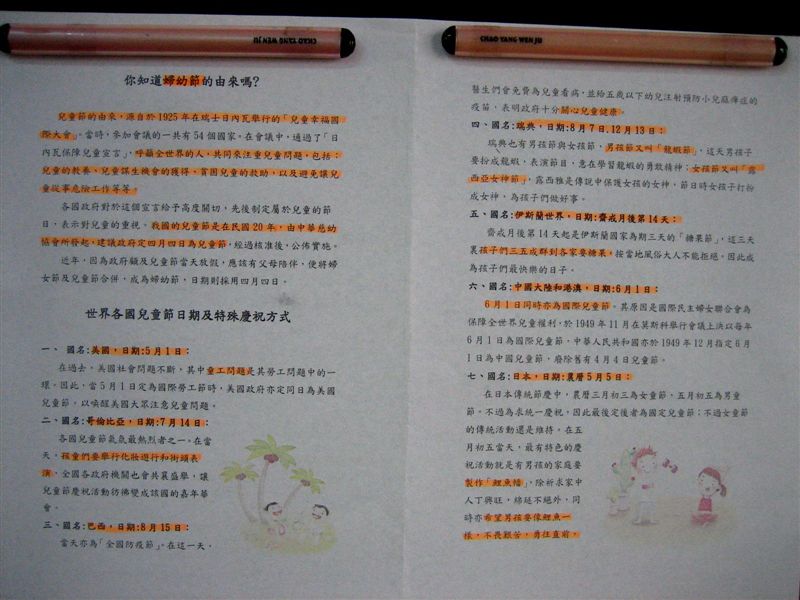 CHAO YANG WEN JU
CHAO YANG WEN JU
你知道婦幼節的由來嗎?
兒童節的由來,源自於1925年在瑞士日內瓦舉行的「兒童幸福國
際大會」。當時,參加會議的一共有54個國家。在會議中,通過了「日
內瓦保障兒童宣言」,呼籲全世界的人,共同來注重兒童問題,包括:
兒童的教養、兒童謀生機會的獲得、貧困兒童的救助,以及避免讓兒
童從事危險工作等等。
各國政府對於這個宣言給予高度關切,先後制定屬於兒童的節
日,表示對兒童的重視。我國的兒童節是在民國20年,由中華慈幼
協會所發起,建議政府定四月四日為兒童節,經過核准後,公佈實施。
近年,因為政府顧及兒童節當天放假,應該有父母陪伴,便將婦
女節及兒童節合併,成為婦幼節,日期則採用四月四日。
世界各國兒童節日期及特殊慶祝方式
一、 國名:美國,日期:5月1日:
在過去,美國社會問題不斷,其中童工問題是其勞工問題中的一
環。因此,當5月1日定為國際勞工節時,美國政府亦定同日為美國
兒童節,以喚醒美國大眾注意兒童問題。
二、國名:哥倫比亞,日期:7月14日:
各國兒童節氣氛最熱烈者之一。在當
天,孩童們要舉行化妝遊行和街頭表
演,全國各政府機關也會共襄盛舉,讓
兒童節慶祝活動彷彿變成該國的嘉年華
會。
三、國名:巴西,日期:8月15日:
當天亦為「全國防疫節」。在這一天,
醫生們會免費為兒童看病,並給五歲以下幼兒注射預防小兒麻痺症的
疫苗,表明政府十分關心兒童健康。
四、國名:瑞典,日期:8月7日、12月13日:
瑞典也有男孩節與女孩節,男孩節又叫「龍蝦節」,這天男孩子
要扮成龍蝦,表演節目,意在學習龍蝦的勇敢精神;女孩節又叫「露
西亞女神節」,露西雅是傳說中保護女孩的女神,節日時女孩子打扮
成女神,為孩子們做好事。
五、國名:伊斯蘭世界,日期:齋戒月後第14天:
齋戒月後第14天起是伊斯蘭國家為期三天的「糖果節」,這三天
裏孩子們三五成群到各家要糖果,按當地風俗大人不能拒絕。因此成
為孩子們最快樂的日子。
六、國名:中國大陸和港澳,日期:6月1日:
6月1日同時亦為國際兒童節。其原因是國際民主婦女聯合會為
保障全世界兒童權利,於1949年11月在莫斯科舉行會議上決以每年
6月1日為國際兒童節。中華人民共和國亦於1949年12月指定6月
1日為中國兒童節,廢除舊有4月4日兒童節。
七、國名:日本,日期:農曆5月5日:
在日本傳統節慶中,農曆三月初三為女童節,五月初五為男童
節。不過為求統一慶祝,因此最後定後者為國定兒童節;不過女童節
的傳統活動還是維持。在五
月初五當天,最有特色的慶
祝活動就是有男孩的家庭要
製作「鯉魚幡」,除祈求家中
人丁興旺,綿延不絕外,同
時亦希望男孩要像鯉魚一
樣,不畏艱苦,勇往直前,